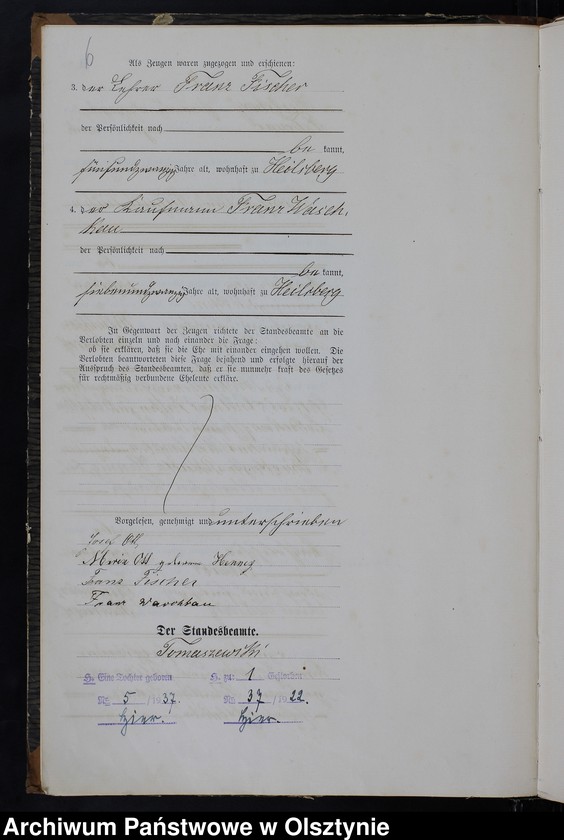 6
Als Zeugen waren zugezogen und erschienen:
3. der Lehrer Franz Fischer
der Persönlichkeit nach
be kannt,
fünfundzwanzig Jahre alt, wohnhaft zu Heilsberg
4. der Kaufmann Franz Wasch-
kau
der Persönlichkeit nach
be kannt,
siebenundzwanzig Jahre alt, wohnhaft zu Heilsberg
In Gegenwart der Zeugen richtete der Standesbeamte an die
Verlobten einzeln und nach einander die Frage:
ob sie erklären, daß sie die Ehe mit einander eingehen wollen. Die
Verlobten beantworteten diese Frage bejahend und erfolgte hierauf der
Ausspruch des Standesbeamten, daß er sie nunmehr kraft des Gesetzes
für rechtmäßig verbundene Eheleute erkläre.
Vorgelesen, genehmigt und unterschrieben
Josef Ott
Maria Ott geborene
Franz Fischer
Franz Waschkau
Der Standesbeamte.
Tomaszewski
H. Eine Tochter geboren H. zu: 1 Gestorben
No 5 /1937. No 37 /1922.
hier. hier.
Archiwum Państwowe w Olsztynie